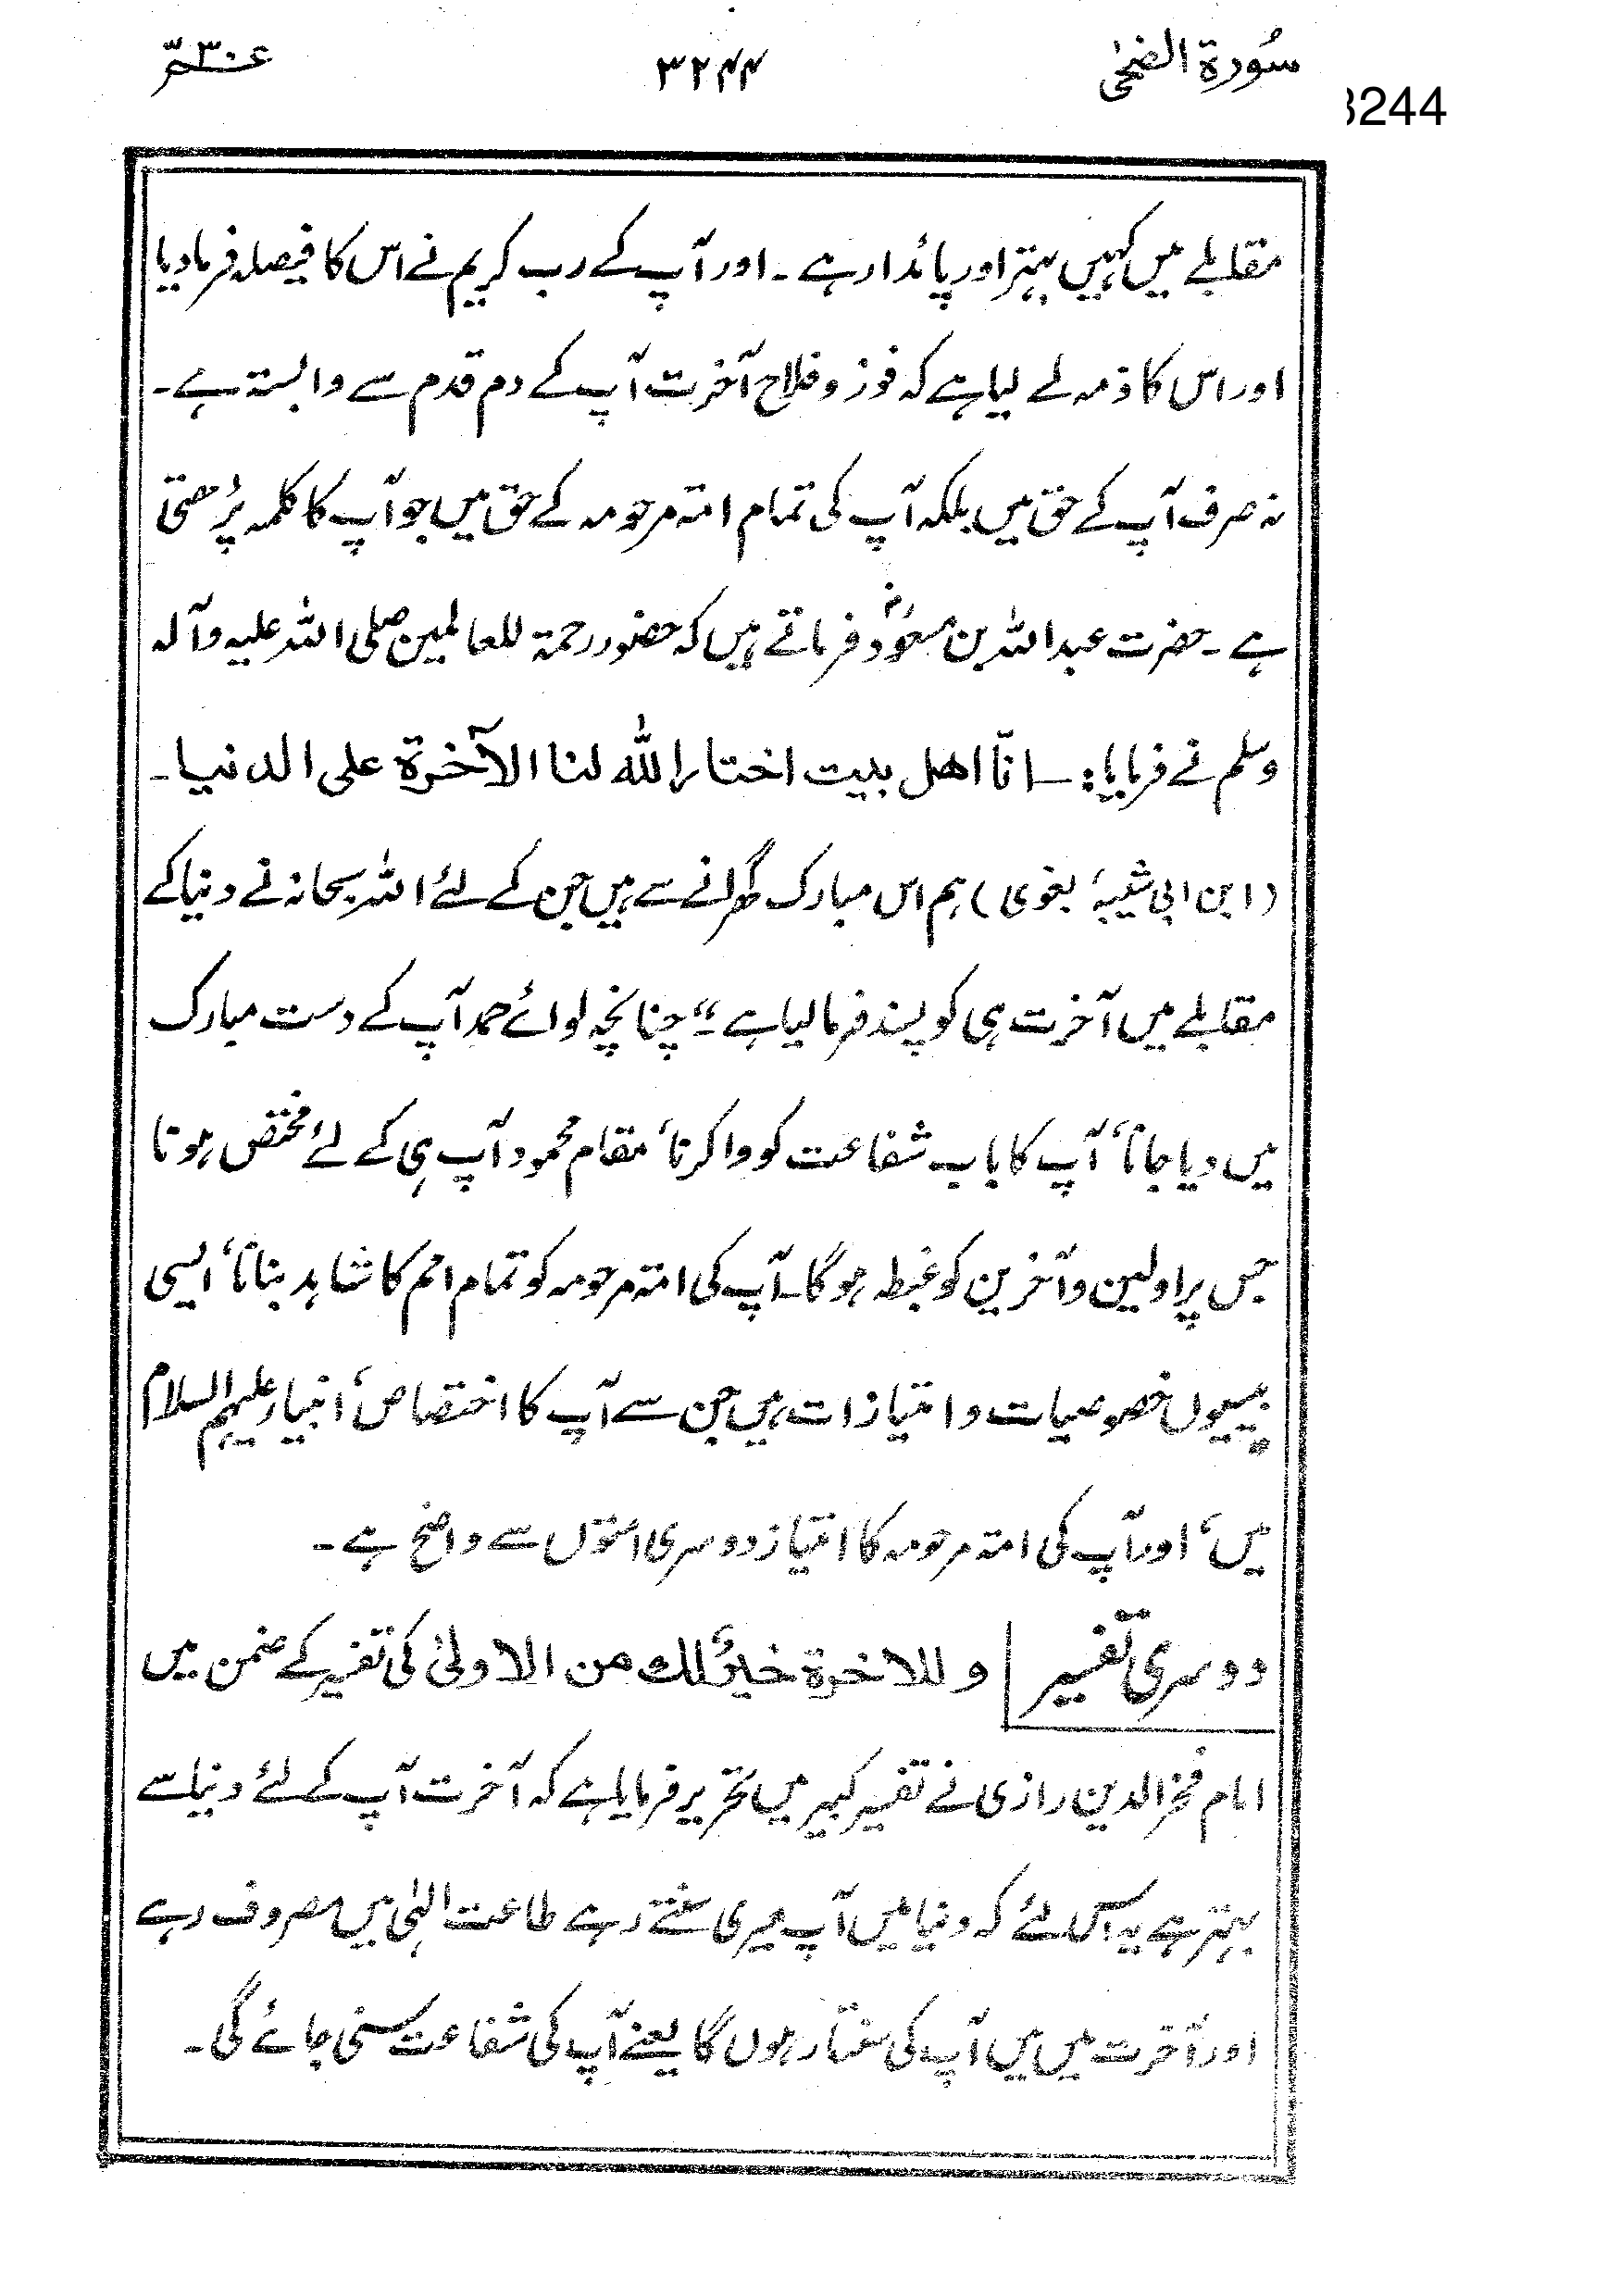 سُورة الضحٰی ۳۲۴۴ عـم۳۰
3244
مقابلے میں کہیں بہتر اور پائدار ہے ۔ اور آپ کے رب کریم نے اس کا فیصلہ فرمادیا
اور اس کا ذمہ لے لیا ہے کہ فوز و فلاح آخرت آپ کے دم قدم سے وابستہ ہے ۔
نہ صرف آپ کے حق میں بلکہ آپ کی تمام امتہ مرحومہ کے حق میں جو آپ کا کلمہ پڑھتی
ہے ۔ حضرت عبداللہ بن مسعودؓ فرماتے ہیں کہ حضور رحمۃ للعالمین صلی اللہ علیہ وآلہ
وسلم نے فرمایا : ــ انّا اهل بيت اختار الله لنا الآخرة على الدنيا ۔
( ابن ابی شیبہ ، بغوی ) ہم اس مبارک گھرانے سے ہیں جن کے لئے اللہ سبحانہ نے دنیا کے
مقابلے میں آخرت ہی کو پسند فرمالیا ہے ۔“ چنانچہ لوائے حمد آپ کے دست مبارک
میں دیا جانا ، آپ کا باب شفاعت کو وا کرنا ، مقام محمود آپ ہی کے لئے مختص ہونا
جس پر اولین و آخرین کو غبطہ ہوگا ۔ آپ کی امتہ مرحومہ کو تمام امم کا شاہد بنانا ، ایسی
بیسیوں خصوصیات و امتیازات ہیں جن سے آپ کا اختصاص ، انبیاء علیہم السلام
میں ، اور آپ کی امتہ مرحومہ کا امتیاز دوسری امتوں سے واضح ہے ۔
دوسری تفسیر وللاخرة خيرٌ لك من الاولىٰ کی تفسیر کے ضمن میں
امام فخر الدین رازی نے تفسیر کبیر میں تحریر فرمایا ہے کہ آخرت آپ کے لئے دنیا سے
بہتر ہے یہ اس لئے کہ دنیا میں آپ میری سنتے رہے طاعت الٰہی میں مصروف رہے
اور آخرت میں میں آپ کی سنتا رہوں گا یعنے آپ کی شفاعت سنی جائے گی ۔